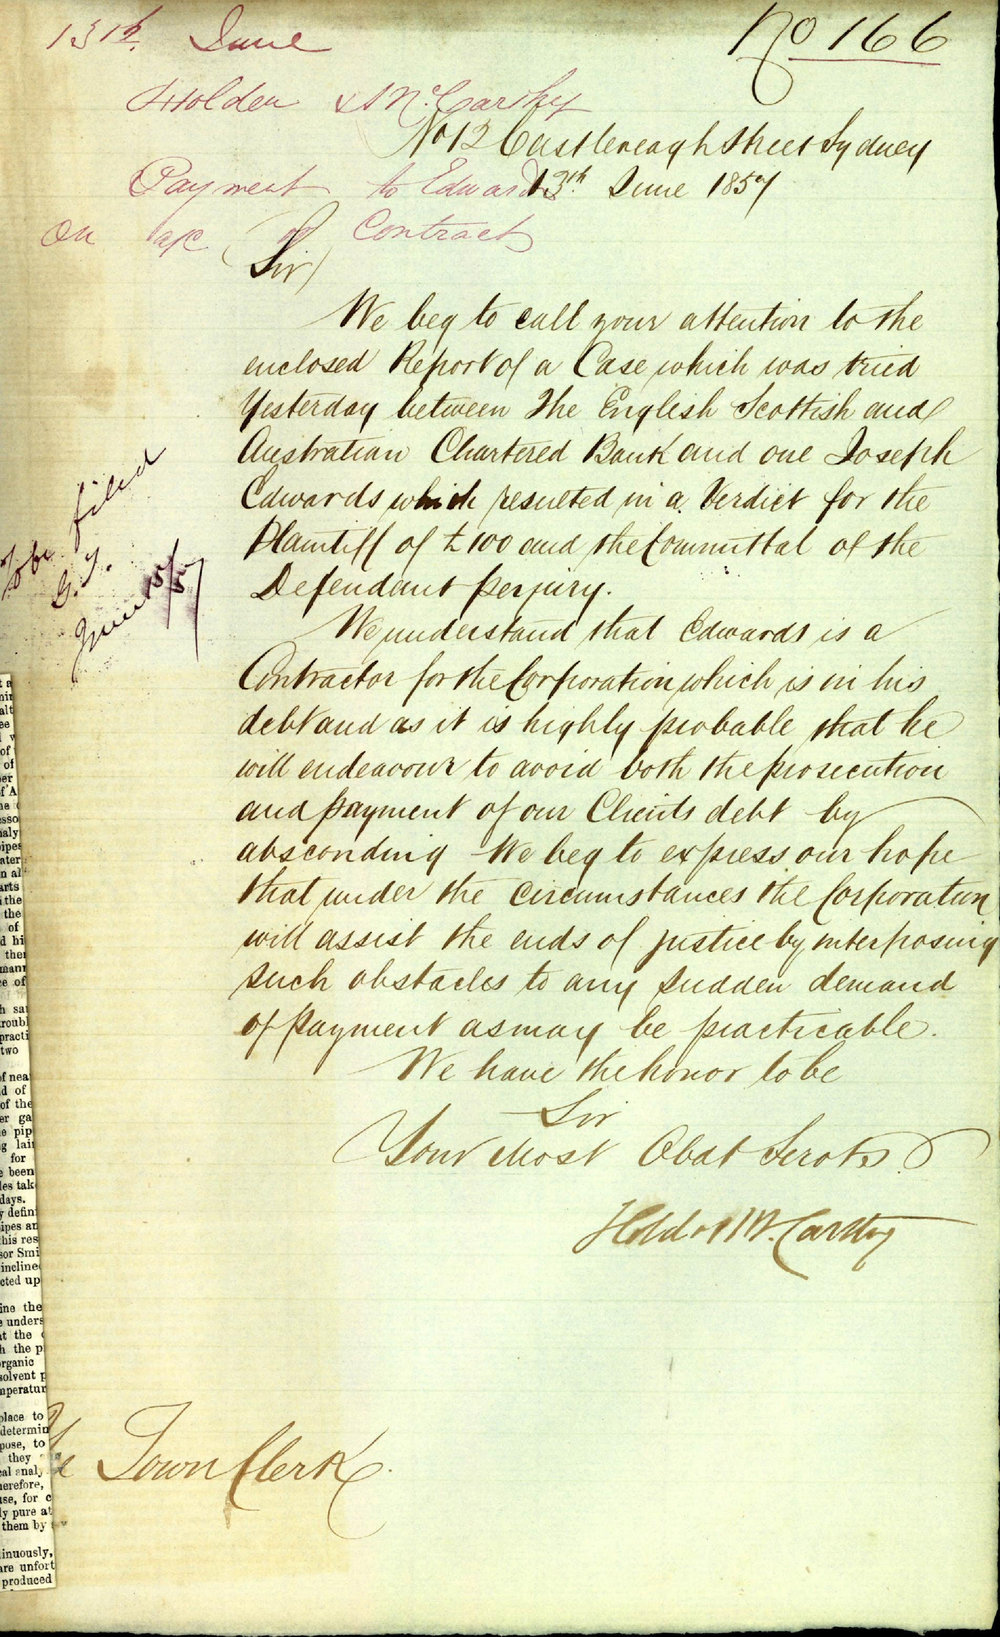 13th. June
No 166
Holden & McCarthy
No 12 Castlereagh Street Sydney
Payment to Edwards
13th June 1857
on a/c of Contract
Sir
We beg to call your attention to the
enclosed Report of a Case which was tried
Yesterday between The English Scottish and
Australian Chartered Bank and one Joseph
Edwards which resulted in a Verdict for the
Plaintiff of £100 and the Committal of the
Defendant perjury.
We understand that Edwards is a
Contractor for the Corporation which is in his
debt and as it is highly probable that he
will endeavour to avoid both the prosecution
and payment of our Clients debt by
absconding We beg to express our hope
that under the circumstances the Corporation
will assist the ends of justice by interposing
such obstacles to any sudden demand
of payment as may be practicable.
We have the honor to be
Sir
Your Most Obdt Servts
Hold & McCarthy
The Town Clerk.
To be filed
June 15/57
of
of
per
of A
ater
arts
the
the
of
ther
ce of
practi
two
of nea
d of
of the
er ga
e pip
g lai
for
been
les tak
days.
defin
ipes an
this res
sor Smi
incline
cted up
ine the
unders
at the
h the p
organic
solvent p
mperatur
place to
determin
pose, to
they
cal analy
herefore,
use, for c
ly pure at
them by
inuously,
are unfort
produced